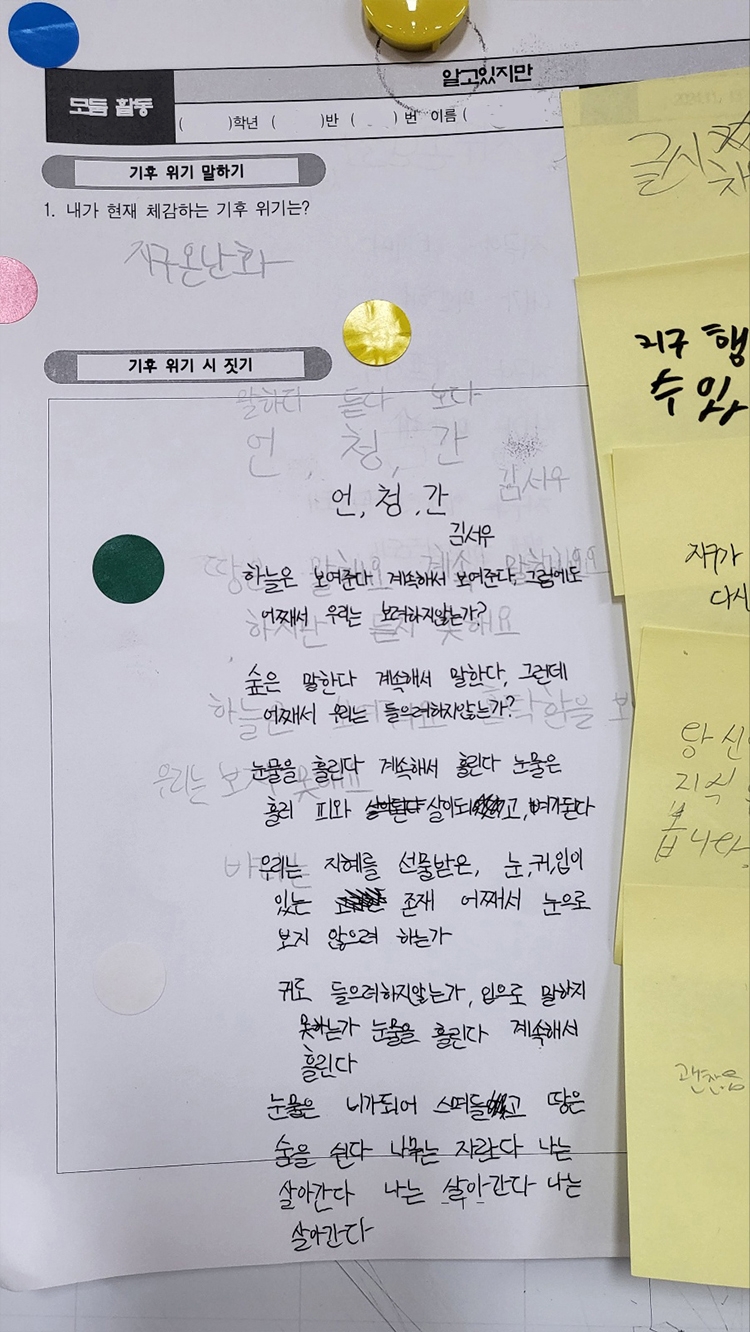 알고있지만
모둠 활동
( )학년 ( )반 ( ) 번 이름 (
기후 위기 말하기
1. 내가 현재 체감하는 기후 위기는?
지구온난화
기후 위기 시 짓기
말하다 듣다 보다
언, 청, 간
김서우
언, 청, 간
김서우
하늘은 보여준다 계속해서 보여준다, 그럼에도
어째서 우리는 보려하지않는가?
숲은 말한다 계속해서 말한다, 그런데
어째서 우리는 들으려하지않는가?
눈물을 흘린다 계속해서 흘린다 눈물은
흘러 피와 살이되고, 뼈가된다
우리는 지혜를 선물받은, 눈,귀,입이
있는 존재 어째서 눈으로
보지 않으려 하는가
귀로 들으려하지않는가, 입으로 말하지
못하는가 눈물을 흘린다 계속해서
흘린다
눈물은 비가되어 스며들고 땅은
숨을 쉰다 나무는 자란다 나는
살아간다 나는 살아간다 나는
살아간다
땅은 말해요 계속
하지만 듣지 못해요
하늘은
우리는 보지 못해요
글시
지구 행
수 있
지구가
다시
당신
지식
봅니다
괜찮음